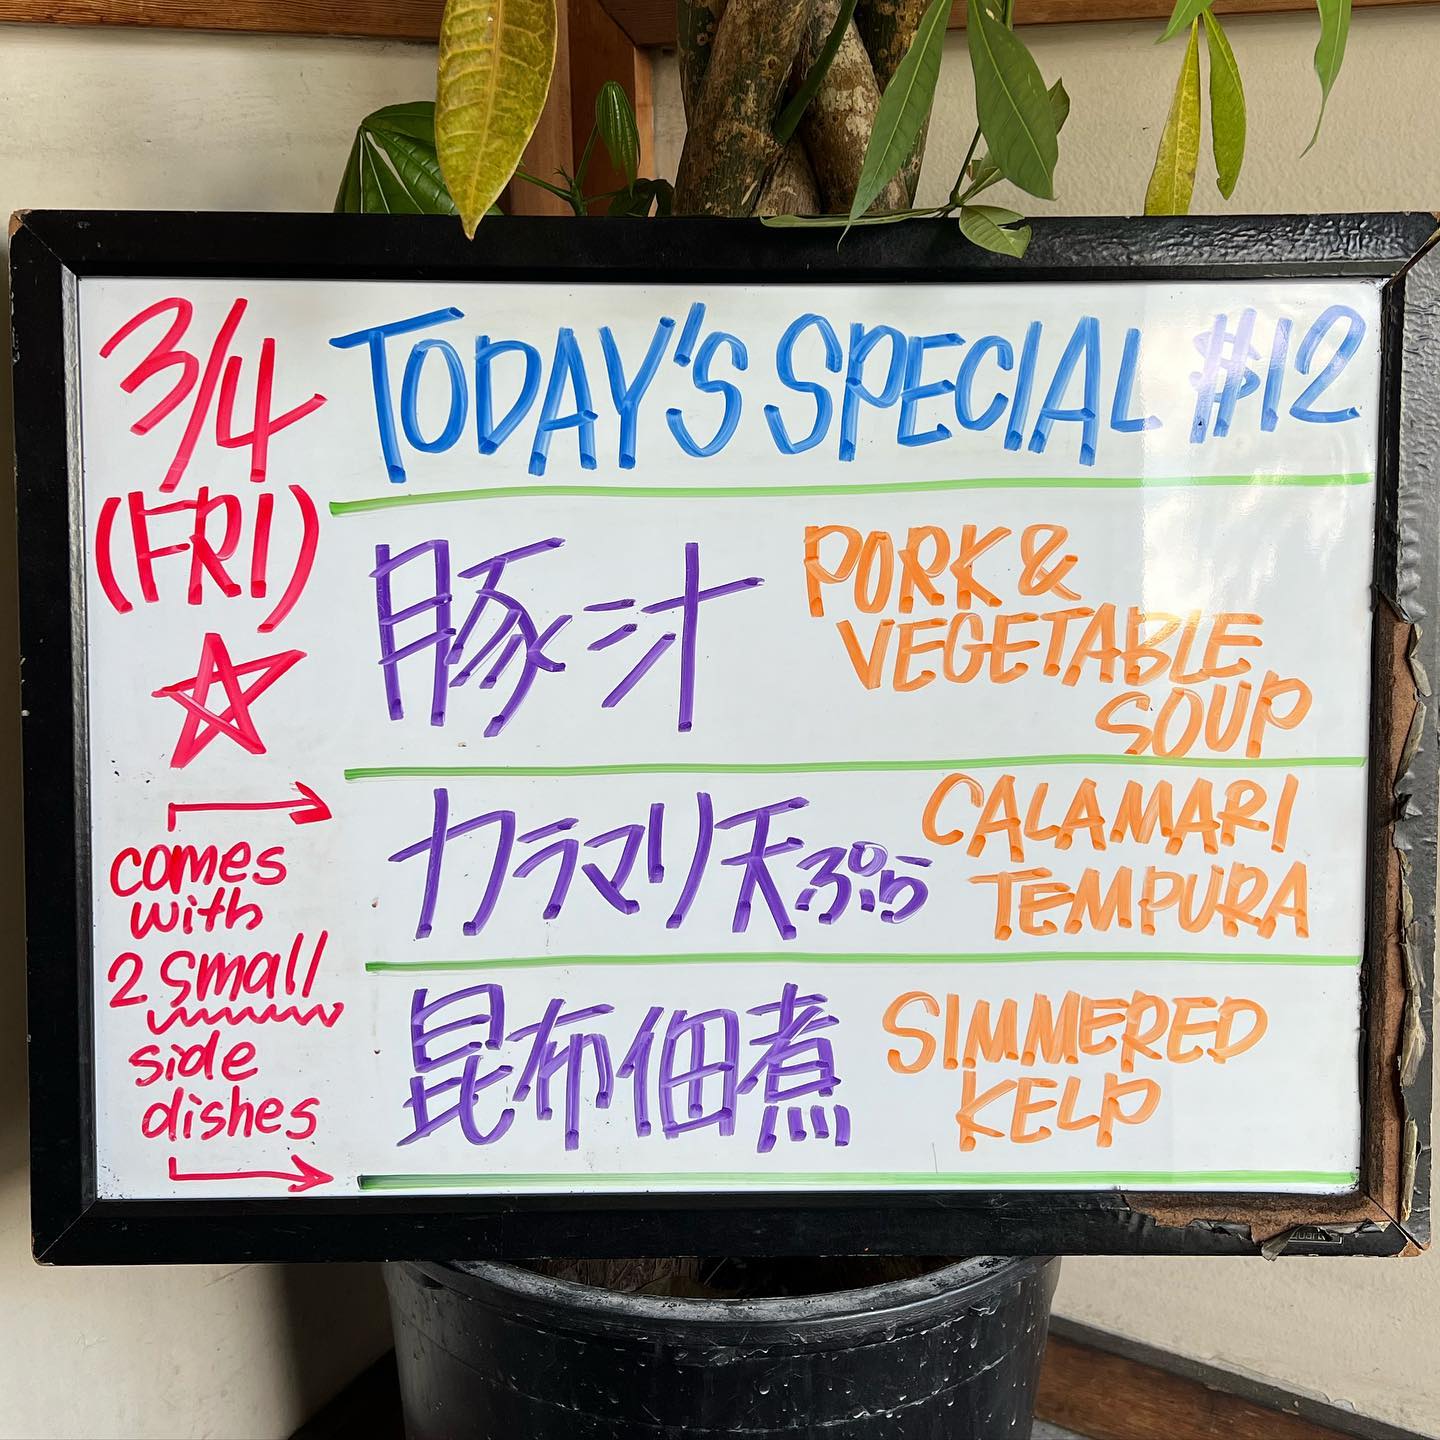 3/4
(FRI)
☆
→
comes
with
2 small
side
dishes
→
TODAY'S SPECIAL $12
豚汁
PORK &
VEGETABLE
SOUP
カラマリ天ぷら
CALAMARI
TEMPURA
昆布佃煮
SIMMERED
KELP